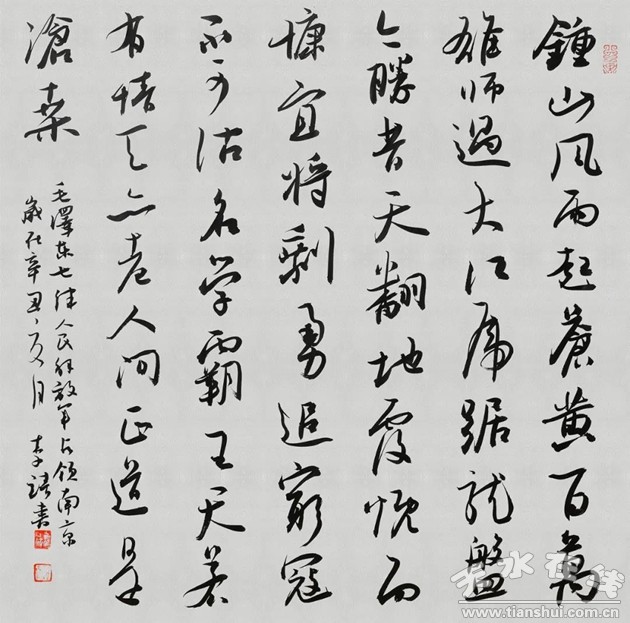 鍾山风雨起蒼黄百萬
雄师過大江虎踞龙盤
今勝昔天翻地覆慨而
慷宜将剩勇追窮寇
不可沽名学霸王天若
有情天亦老人间正道是
滄桑
毛澤东七律人民解放军占领南京
歲在辛丑夏月 李书
天水在线
www.tianshui.com.cn